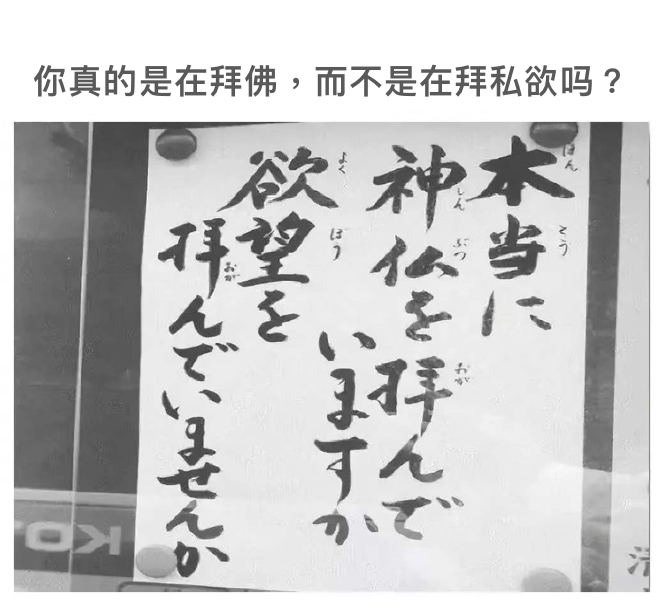 你真的是在拜佛，而不是在拜私欲吗？
本当に
ほんとう
神仏を拝んで
しんぶつ おが
いますか
欲望を
よくぼう
拝んでいませんか
おが
KO